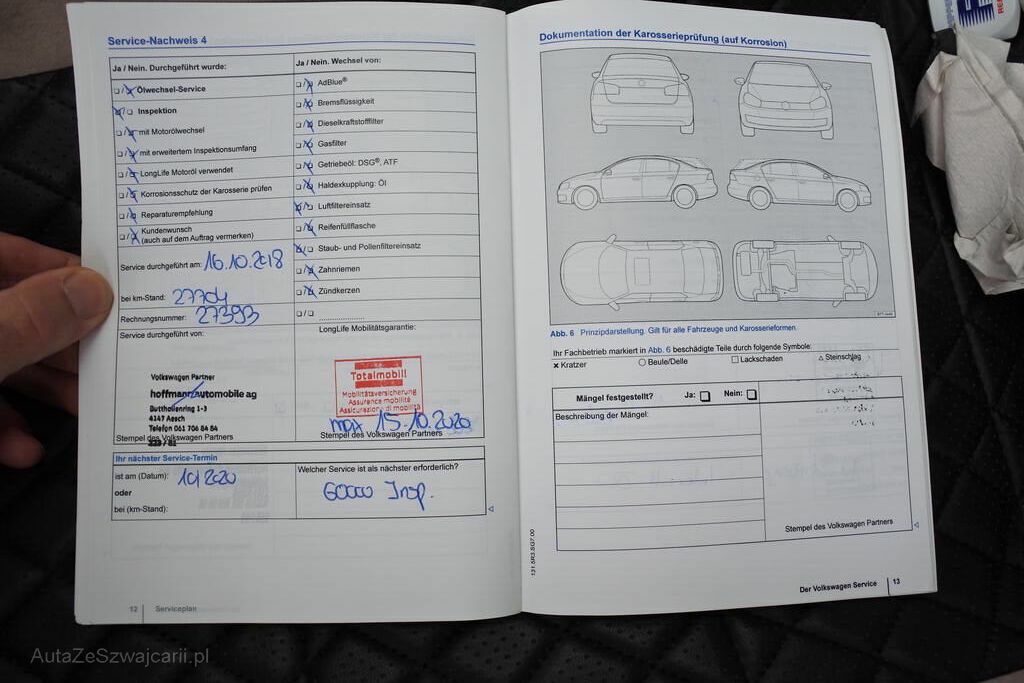 Service-Nachweis 4
Ja / Nein. Durchgeführt wurde:
Ölwechsel-Service
Inspektion
mit Motorölwechsel
mit erweitertem Inspektionsumfang
LongLife Motoröl verwendet
Korrosionsschutz der Karosserie prüfen
Reparaturempfehlung
Kundenwunsch
(auch auf dem Auftrag vermerken)
Service durchgeführt am: 16.10.2018
bei km-Stand: 27704
Rechnungsnummer: 27393
Service durchgeführt von:
Volkswagen Partner
hoffmann automobile ag
Buttholenring 1-3
4147 Aesch
Telefon 061 706 84 84
Stempel des Volkswagen Partners
Ja / Nein. Wechsel von:
AdBlue®
Bremsflüssigkeit
Dieselkraftstofffilter
Gasfilter
Getriebeöl: DSG®, ATF
Haldexkupplung: Öl
Luftfiltereinsatz
Reifenfüllflasche
Staub- und Pollenfiltereinsatz
Zahnriemen
Zündkerzen
LongLife Mobilitätsgarantie:
Totalmobil!
Mobilitätsversicherung
Assurance mobilité
Assicurazione di mobilità
max 15.10.2020
Stempel des Volkswagen Partners
Ihr nächster Service-Termin
ist am (Datum): 10/2020
oder
bei (km-Stand):
Welcher Service ist als nächster erforderlich?
60000 Insp.
12 Serviceplan
Dokumentation der Karosserieprüfung (auf Korrosion)
Abb. 6 Prinzipdarstellung. Gilt für alle Fahrzeuge und Karosserieformen.
Ihr Fachbetrieb markiert in Abb. 6 beschädigte Teile durch folgende Symbole:
× Kratzer ○ Beule/Delle □ Lackschaden △ Steinschlag
Mängel festgestellt? Ja: Nein:
Beschreibung der Mängel:
Stempel des Volkswagen Partners
131.5R3.SG7.00
Der Volkswagen Service 13
AutaZeSzwajcarii.pl